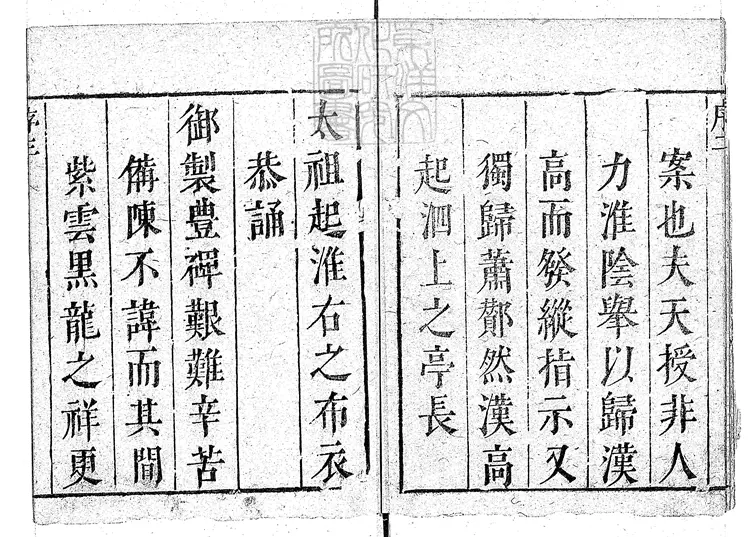 案也夫天授非人
力淮陰舉以歸漢
高而發縱指示又
獨歸蕭酇然漢高
起泗上之亭長
太祖起淮右之布衣
恭誦
御製豊碑艱難辛苦
備陳不諱而其間
紫雲黑龍之祥更